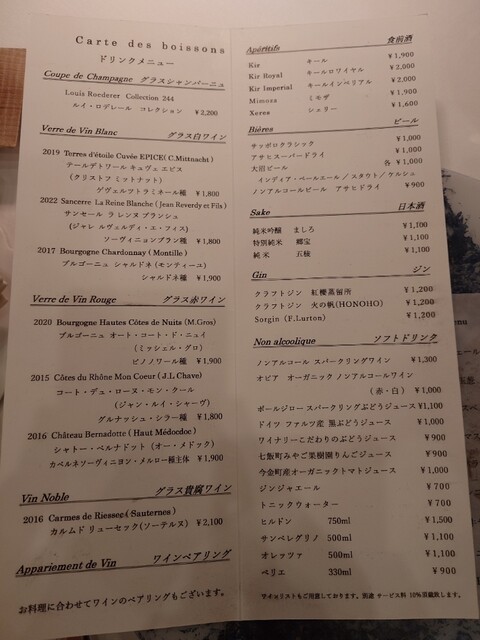 Carte des boissons
ドリンクメニュー
Coupe de Champagne グラスシャンパーニュ
Louis Roederer Collection 244
ルイ・ロデレール コレクション ¥2,200
Verre de Vin Blanc グラス白ワイン
2019 Terres d'étoile Cuvée EPICE( C.Mittnacht )
テールデトワール キュヴェ エピス
(クリストフ ミットナット)
ゲヴェルツトラミネール種 ¥1,800
2022 Sancerre La Reine Blanche ( Jean Reverdy et Fils )
サンセール ラ レンヌ ブランシュ
(ジャレ ルヴェルディ・エ・フィス)
ソーヴィニョンブラン種 ¥1,800
2017 Bourgogne Chardonnay ( Montille )
ブルゴーニュ シャルドネ (モンティーユ)
シャルドネ種 ¥1,900
Verre de Vin Rouge グラス赤ワイン
2020 Bourgogne Hautes Côtes de Nuits (M.Gros)
ブルゴーニュ オート・コート・ド・ニュイ
(ミッシェル・グロ)
ピノノワール種 ¥1,900
2015 Côtes du Rhône Mon Coeur ( J.L Chave)
コート・デュ・ローヌ・モン・クール
(ジャン・ルイ・シャーヴ)
グルナッシュ・シラー種 ¥1,800
2016 Château Bernadotte ( Haut Médocdoc )
シャトー・ベルナドット (オー・メドック)
カベルネソーヴィニヨン・メルロー種主体 ¥1,900
Vin Noble グラス貴腐ワイン
2016 Carmes de Riessec( Sauternes )
カルムド リューセック(ソーテルヌ) ¥2,100
Appariement de Vin ワインペアリング
お料理に合わせてワインのペアリングもございます。
Apéritifs 食前酒
Kir キール ¥1,900
Kir Royal キールロワイヤル ¥2,000
Kir Imperial キールインペリアル ¥2,000
Mimoza ミモザ ¥1,900
Xeres シェリー ¥1,600
Bières ビール
サッポロクラシック ¥1,000
アサヒスーパードライ ¥1,000
大沼ビール 各 ¥1,000
インディア・ペールエール / スタウト / ケルシュ
ノンアルコールビール アサヒドライ ¥900
Sake 日本酒
純米吟醸 ましろ ¥1,100
特別純米 郷宝 ¥1,100
純米 五稜 ¥1,100
Gin ジン
クラフトジン 紅櫻蒸留所 ¥1,200
クラフトジン 火の帆(HONOHO) ¥1,200
Sorgin (F.Lurton) ¥1,200
Non alcoolique ソフトドリンク
ノンアルコール スパークリングワイン ¥1,300
オピア オーガニック ノンアルコールワイン
(赤・白) ¥1,000
ポールジロー スパークリングぶどうジュース ¥1,100
ドイツ ファルツ産 黒ぶどうジュース ¥1,000
ワイナリーこだわりのぶどうジュース ¥900
七飯町みやご果樹園りんごジュース ¥900
今金町産オーガニックトマトジュース ¥1,000
ジンジャエール ¥700
トニックウォーター ¥700
ヒルドン 750ml ¥1,500
サンペレグリノ 500ml ¥1,100
オレッツァ 500ml ¥1,100
ペリエ 330ml ¥900
ワインリストもご用意しております。別途 サービス料 10%頂戴致します。